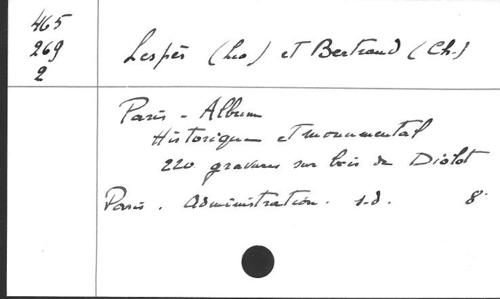 465
269
2
Lespès (Leo) et Bertrand (Ch.)
Paris - Album
Historique et monumental
220 gravures sur bois de Diolot
Paris. Administration. s.d. 8°